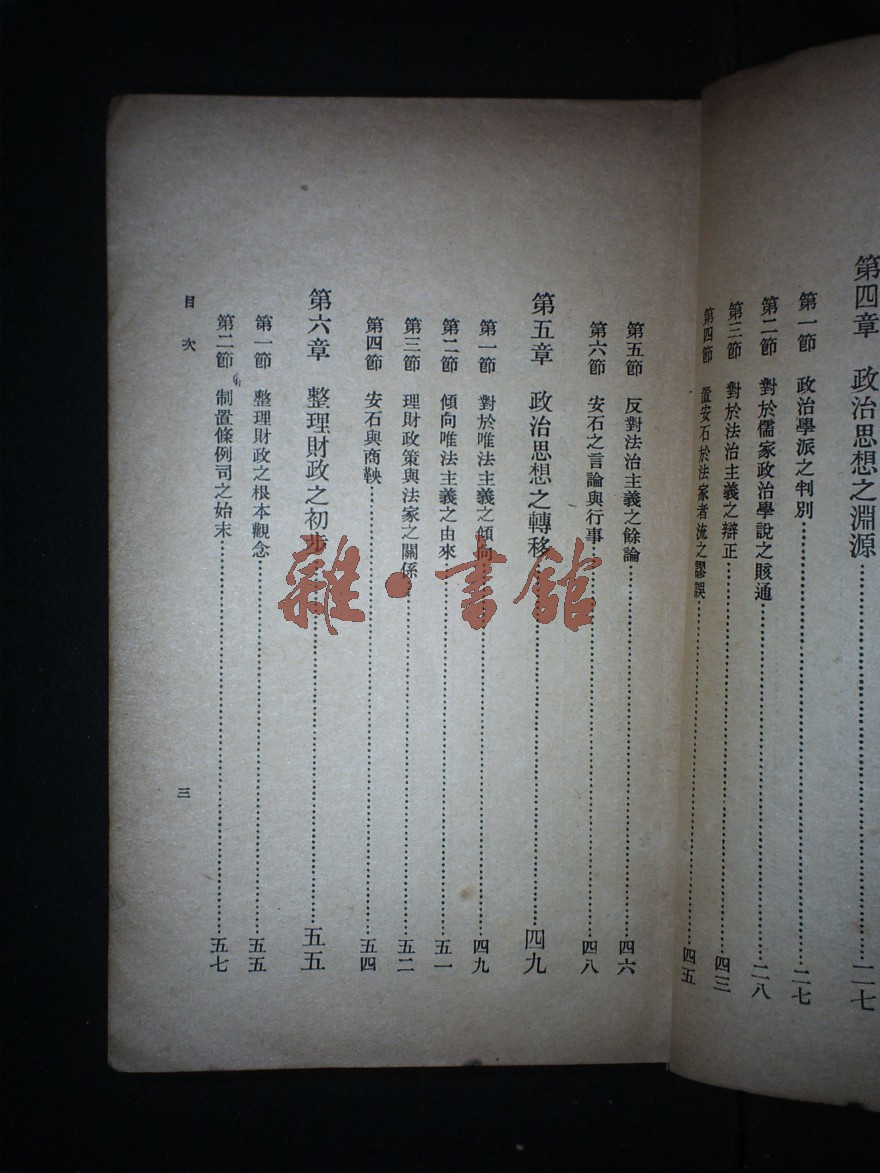 第四章 政治思想之淵源……二七
第一節 政治學派之判別……二七
第二節 對於儒家政治學說之賅通……二八
第三節 對於法治主義之辯正……四三
第四節 置安石於法家者流之謬誤……四五
第五節 反對法治主義之餘論……四六
第六節 安石之言論與行事……四八
第五章 政治思想之轉移……四九
第一節 對於唯法主義之傾向……四九
第二節 傾向唯法主義之由來……五一
第三節 理財政策與法家之關係……五二
第四節 安石與商鞅……五四
第六章 整理財政之初步……五五
第一節 整理財政之根本觀念……五五
第二節 制置條例司之始末……五七
目次
三
雜·書館